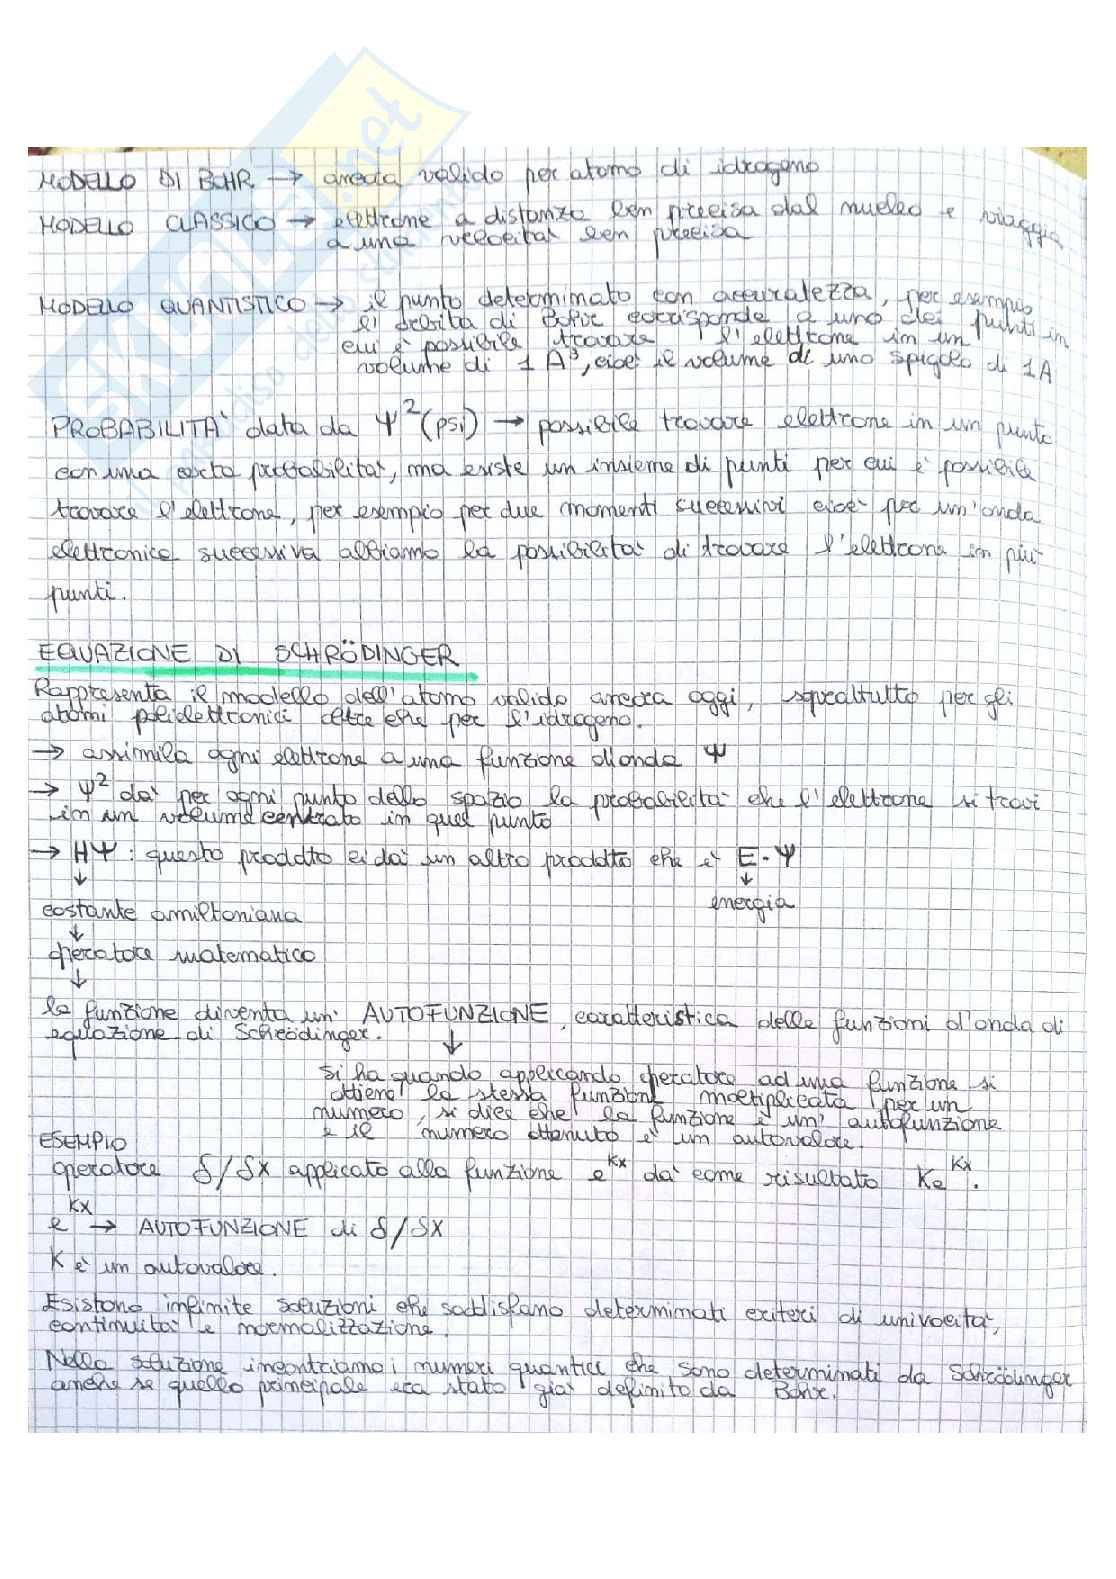 MODELLO DI BOHR → ancora valido per atomo di idrogeno
MODELLO CLASSICO → elettrone a distanza ben precisa dal nucleo e viaggia
a una velocità ben precisa
MODELLO QUANTISTICO → il punto determinato con accuratezza, per esempio
l'orbita di Bohr corrisponde a uno dei punti in
cui è possibile trovare l'elettrone in un
volume di 1 A³, cioè il volume di uno spigolo di 1A
PROBABILITA' data da Ψ² (psi) → possibile trovare elettrone in un punto
con una certa probabilità, ma esiste un insieme di punti per cui è possibile
trovare l'elettrone, per esempio per due momenti successivi cioè per un'onda
elettronica successiva abbiamo la possibilità di trovare l'elettrone in più
punti.
EQUAZIONE DI SCHRÖDINGER
Rappresenta il modello dell'atomo valido ancora oggi, sopratutto per gli
atomi polielettronici oltre che per l'idrogeno.
→ assimila ogni elettrone a una funzione d'onda Ψ
→ Ψ² dà per ogni punto dello spazio la probabilità che l'elettrone si trovi
in un volume centrato in quel punto
→ HΨ : questo prodotto ci dà un altro prodotto che è E·Ψ
↓ ↓
costante amiltoniana energia
↓
operatore matematico
↓
la funzione diventa un' AUTOFUNZIONE, caratteristica delle funzioni d'onda di
equazione di Schrödinger. ↓
si ha quando applicando operatore ad una funzione si
ottiene la stessa funzione moltiplicata per un
numero, si dice che la funzione è un' autofunzione
e il numero ottenuto è un autovalore.
ESEMPIO
operatore δ/δx applicato alla funzione e^Kx dà come risultato Ke^Kx.
e^Kx → AUTOFUNZIONE di δ/δx
K è un autovalore.
Esistono infinite soluzioni che soddisfano determinati criteri di univocità,
continuità e normalizzazione.
Nella soluzione incontriamo i numeri quantici che sono determinati da Schrödinger
anche se quello principale era stato già definito da Bohr.